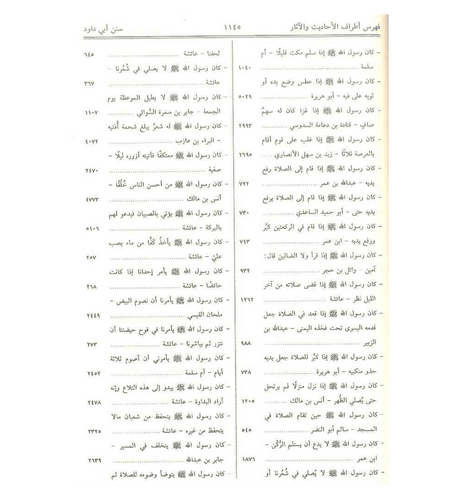 فهرس أطراف الأحاديث والآثار
١١٤٥
سنن أبي داود
- كان رسول الله ﷺ إذا سلم مكث قليلًا - أم
سلمة ... ١٠٤٠
- كان رسول الله ﷺ إذا عطس وضع يده أو
ثوبه على فيه - أبو هريرة ... ٥٠٢٩
- كان رسول الله ﷺ إذا غزا كان له سهم
صافٍ - قتادة بن دعامة السدوسي ... ٢٩٩٣
- كان رسول الله ﷺ إذا غلب على قوم أقام
بالعرصة ثلاثًا - زيد بن سهل الأنصاري ... ٢٦٩٥
- كان رسول الله ﷺ إذا قام إلى الصلاة رفع
يديه - عبدالله بن عمر ... ٧٢٢
- كان رسول الله ﷺ إذا قام إلى الصلاة يرفع
يديه حتى - أبو حميد الساعدي ... ٧٣٠
- كان رسول الله ﷺ إذا قام في الركعتين كبَّر
ورفع يديه - ابن عمر ... ٧٤٣
- كان رسول الله ﷺ إذا قرأ ولا الضالين قال:
آمين - وائل بن حجر ... ٩٣٢
- كان رسول الله ﷺ إذا قضى صلاته من آخر
الليل نظر - عائشة ... ١٢٦٢
- كان رسول الله ﷺ إذا قعد في الصلاة جعل
قدمه اليسرى تحت فخذه اليمنى - عبدالله بن
الزبير ... ٩٨٨
- كان رسول الله ﷺ إذا كبَّر للصلاة جعل يديه
حذو منكبيه - أبو هريرة ... ٧٣٨
- كان رسول الله ﷺ إذا نزل منزلًا لم يرتحل
حتى يُصلي الظُهر - أنس بن مالك ... ١٢٠٥
- كان رسول الله ﷺ حين تقام الصلاة في
المسجد - سالم أبو النضر ... ٥٤٥
- كان رسول الله ﷺ لا يدع أن يستلم الرُّكن -
ابن عمر ... ١٨٧٦
- كان رسول الله ﷺ لا يُصلي في شُعُرنا أو
لحفنا - عائشة ... ٦٤٥
- كان رسول الله ﷺ لا يصلي في شُعُرنا -
عائشة ... ٣٦٧
- كان رسول الله ﷺ لا يطيل الموعظة يوم
الجمعة - جابر بن سمرة السُّوائي ... ١١٠٧
- كان رسول الله ﷺ له شعرٌ يبلغ شحمة أُذنيه
- البراء بن عازب ... ٤٠٧٢
- كان رسول الله ﷺ معتكفًا فأتيته أزوره ليلًا -
صفية ... ٢٤٧٠
- كان رسول الله ﷺ من أحسن الناس خُلُقًا -
أنس بن مالك ... ٤٧٧٣
- كان رسول الله ﷺ يؤتى بالصبيان فيدعو لهم
بالبركة - عائشة ... ٥١٠٦
- كان رسول الله ﷺ يأخذُ كفًّا من ماء يصب
عليَّ - عائشة ... ٢٥٧
- كان رسول الله ﷺ يأمر إحدانا إذا كانت
حائضًا - عائشة ... ٢٦٨
- كان رسول الله ﷺ يأمرنا أن نصوم البيض -
ملحان القيسي ... ٢٤٤٩
- كان رسول الله ﷺ يأمرنا في فوح حيضتنا أن
نتزر ثم يباشرنا - عائشة ... ٢٧٣
- كان رسول الله ﷺ يأمرني أن أصوم ثلاثة
أيام - أم سلمة ... ٢٤٥٢
- كان رسول الله ﷺ يبدو إلى هذه التلاع وإنه
أراد البداوة - عائشة ... ٢٤٧٨
- كان رسول الله ﷺ يتحفظ من شعبان مالا
يتحفظ من غيره - عائشة ... ٢٣٢٥
- كان رسول الله ﷺ يتخلف في المسير -
جابر بن عبدالله ... ٢٦٣٩
- كان رسول الله ﷺ يتوضأ وضوءه للصلاة ثم